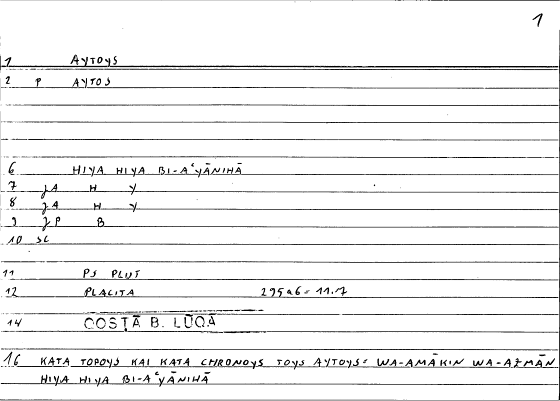 1
1 AYTOYS
2 P AYTOS
6 HIYA HIYA BI-AʿYĀNIHĀ
7 JA H Y
8 JA H Y
9 JP B
10 SC
11 PS PLUT
12 PLACITA 295a6-11.7
14 QOSṬĀ B. LŪQĀ
16 KATA TOPOYS KAI KATA CHRONOYS TOYS AYTOYS= WA-AMĀKIN WA-AZMĀN
HIYA HIYA BI-AʿYĀNIHĀ